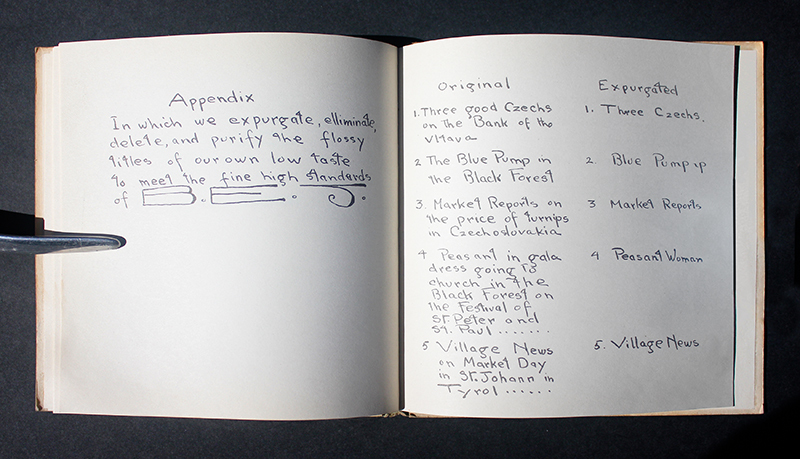 Appendix
In which we expurgate, elliminate,
delete, and purify the flossy
titles of our own low taste
to meet the fine high standards
of
Original
1. Three good Czechs
on the Bank of the
Vltava
2 The Blue Pump in
the Black Forest
3. Market Reports on
the price of turnips
in Czechoslovakia
4 Peasant in gala
dress going to
church in the
Black Forest on
the Festival of
St. Peter and
St. Paul .......
5 Village News
on Market Day
in St. Johann in
Tyrol ......
Expurgated
1. Three Czechs.
2. Blue Pump
3 Market Reports
4 Peasant Woman
5. Village News